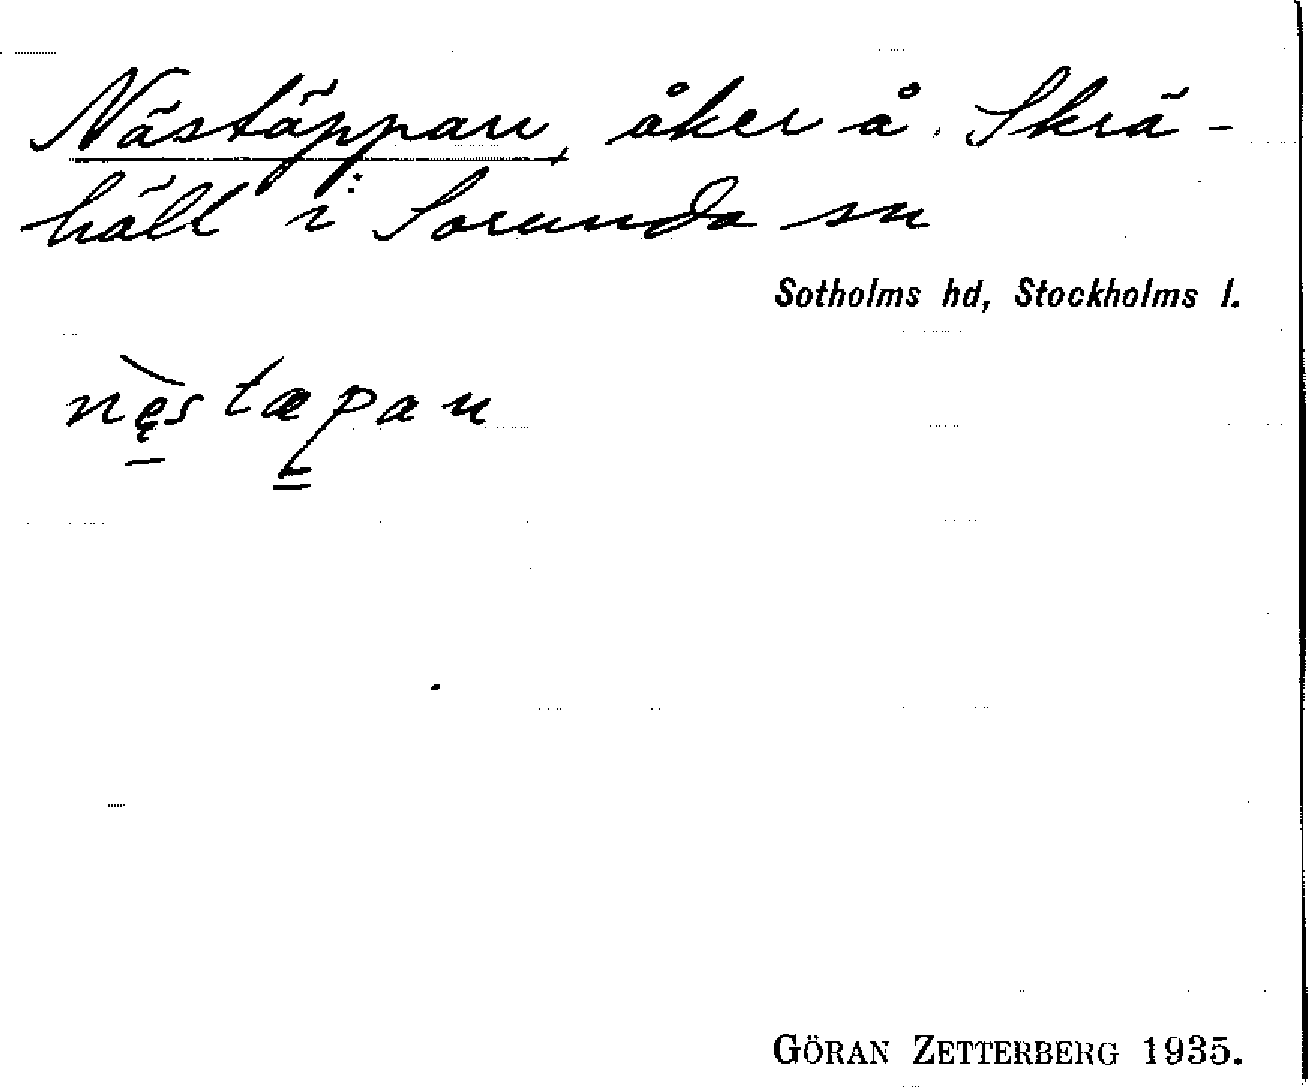 Nästäppan, åker å Skrä-
häll i Sorunda sn
Sotholms hd, Stockholms l.
nę̀stæpan
GÖRAN ZETTERBERG 1935.